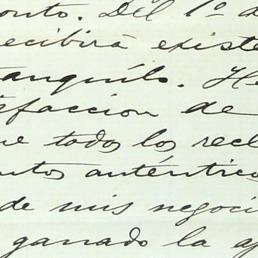 onto. Del 1º d
ecibirá existe
tanquilo. He
efaccion de
ue todos los recl
ntos auténtico
de mis negoci
ganado la a